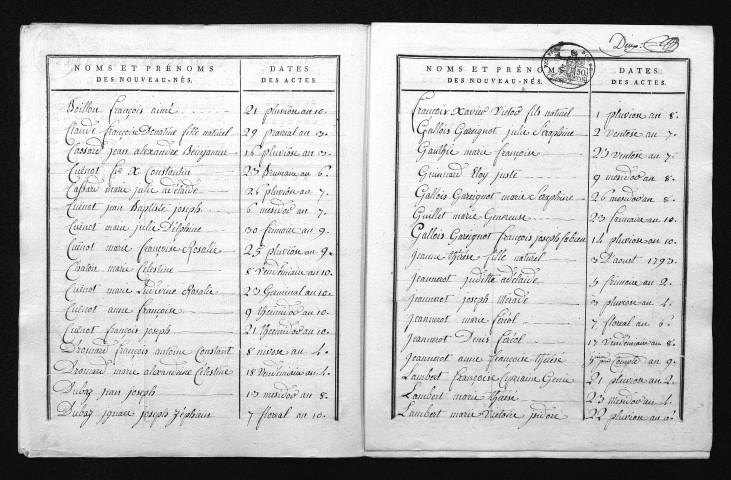 NOMS ET PRÉNOMS DES NOUVEAU-NÉS. DATES DES ACTES.
Boillon françois aimé 21 pluviôse an 10.
Claude françoise Donatine fille naturel 29 prairial an 3.
Cassard jean alexandre Béinjamin 16 pluviôse an 3.
Cuënot f.se X. Constantin 23 frimaire an 6.
Cassard marie julie adélaïde 26 pluviôse an 7.
Cuënot jean Baptiste joseph 6 messidor an 7.
Cuënot marie julie Delphine 30 frimaire an 9.
Cuënot marie françoise Rosalie 25 pluviôse an 9.
Chatou marie Celestine 8 Vendémiaire an 10.
Cuënot marie Ludivine Rosalie 23 Germinal an 10.
Cuënot anne françoise 9 thermidor an 10.
Cuënot françois joseph 21 thermidor an 10.
Dromard françois antoine Constant 8 nivose an 4.
Dromard marie alexandrine Celestine 18 Vendémiaire an 4.
Dubaz jean joseph 13 messidor an 8.
Dubaz ignace joseph Zéphirin 7 floréal an 10.
Deux
NOMS ET PRÉNOMS DES NOUVEAU-NÉS. DATES DES ACTES.
françois Xavier Victor fils naturel 1 pluviôse an 8.
Gallois Gareignot julie Séraphine 2 ventose an 7.
Gauthié marie françoise 23 ventôse an 7.
Guimard Eloy juste 9 messidor an 8.
Gallois Gareignot marie Seraphine 26 messidor an 8.
Guillet marie Genereuse 23 frimaire an 10.
Gallois Gareignot françois joseph fabien 14 pluviôse an 10.
Jeanne thérèse fille naturel 3 D'aout 1793.
Jeannerot juditte adélaïde 5 frimaire an 2.
Jeannerot joseph 3 pluviôse an 4.
Jeannerot marie fereol 7 floreal an 6.
Jeannerot Denis fereol 17 Vendémiaire an 8.
Jeannerot anne françoise thérèse 5 Compl.re an 9.
Lambert françoise Cyprienne 21 pluviôse an 2.
Lambert marie thérèse 23 messidor an 4.
Lambert marie Victoire 22 pluviôse an 9.